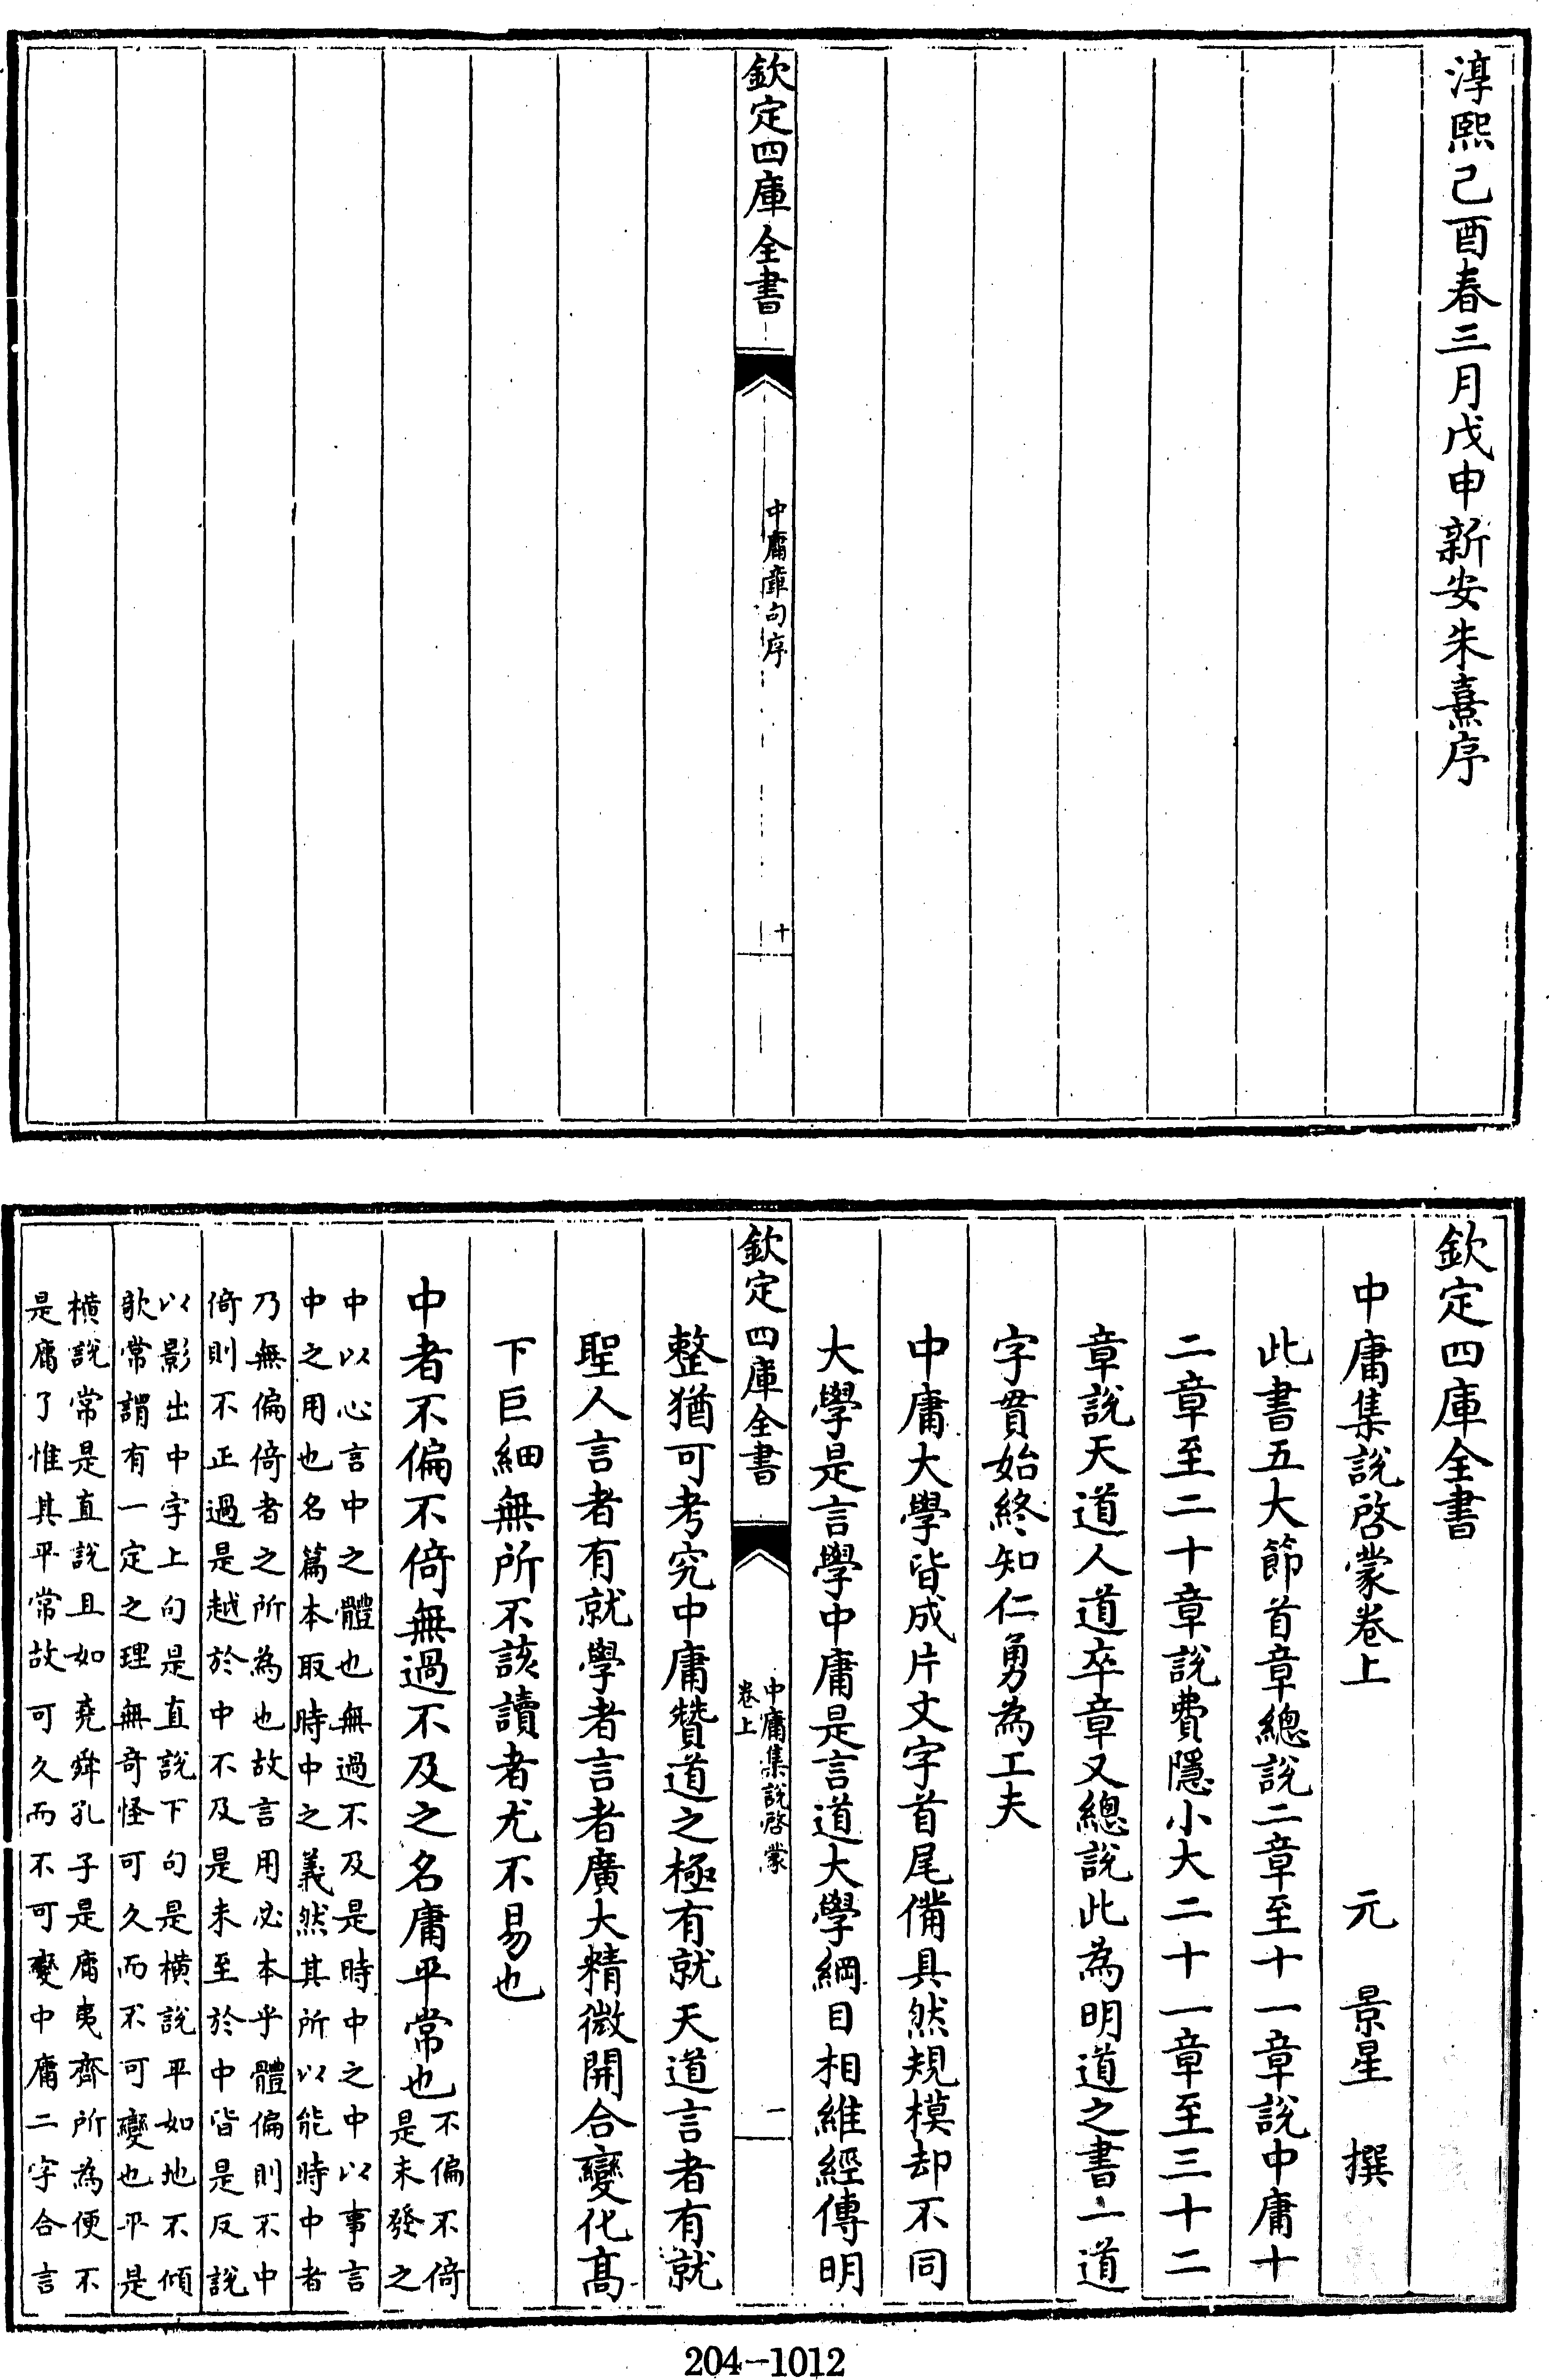 淳熙己酉春三月戊申新安朱熹序
欽定四庫全書
中庸章句序
十
欽定四庫全書
中庸集說啓蒙卷上
元 景星 撰
此書五大節首章總說二章至十一章說中庸十
二章至二十章說費隱小大二十一章至三十二
章說天道人道卒章又總說此為明道之書一道
字貫始終知仁勇為工夫
中庸大學皆成片文字首尾備具然規模却不同
大學是言學中庸是言道大學綱目相維經傳明
欽定四庫全書
中庸集說啓蒙
卷上
一
整猶可考究中庸贊道之極有就天道言者有就
聖人言者有就學者言者廣大精微開合變化高
下巨細無所不該讀者尤不易也
中者不偏不倚無過不及之名庸平常也
不偏不倚
是未發之
中以心言中之體也無過不及是時中之中以事言
中之用也名篇本取時中之義然其所以能時中者
乃無偏倚者之所為也故言用必本乎體偏則不中
倚則不正過是越於中不及是未至於中皆是反說
以影出中字上句是直說下句是橫說平如地不傾
欹常謂有一定之理無奇怪可久而不可變也平是
橫說常是直說且如堯舜孔子是庸夷齊所為便不
是庸了惟其平常故可久而不可變中庸二字合言
204-1012